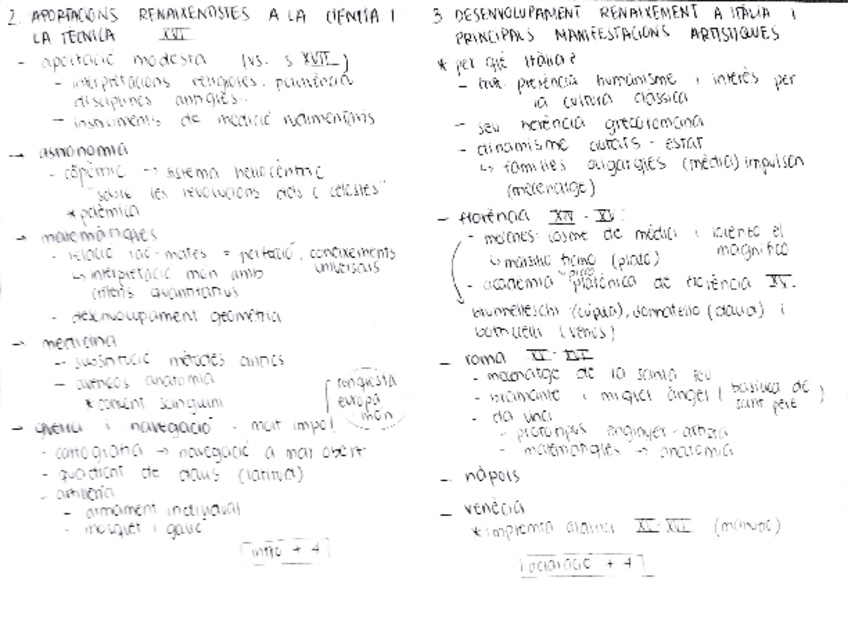 2. APORTACIONS RENAIXENTISTES A LA CIÈNCIA I
LA TÈCNICA XVI
- aportació modesta (vs. s XVII)
- interpretacions religioses. pervivència
disciplines antigues.
- instruments de medició rudimentaris
→ astronomia
- copèrnic → sistema heliocèntric
"sobre les revolucions dels c celestes"
* polèmica
→ matemàtiques
- relació rac-mates = perfecció, coneixements
universals
↳ interpretació món amb
criteris quantitatius
- desenvolupament geometria
→ medicina
- substitució mètodes antics
- avenços anatomia
* corrent sanguini
conquesta
europa
món
→ guerra i navegació - molt impo
- cartografia → navegació a mar obert
- quadrant de daus (latitud)
- artilleria
- armament individual
- mosquet i
intro + 4
3 DESENVOLUPAMENT RENAIXEMENT A ITÀLIA I
PRINCIPALS MANIFESTACIONS ARTÍSTIQUES
* per què Itàlia?
- presència humanisme i interès per
la cultura clàssica
- seu herència grecoromana
- dinamisme ciutats - estat
↳ famílies oligarques (mèdici) impulsen
(mecenatge)
- florència XIV - XV:
- mecenes: cosme de mèdici i lorenzo el
magnífico
↳ marsilio ficino (plató)
- acadèmia platònica de florència XV.
brunnelleschi (cúpula), donnatello (david) i
botticelli (venus)
- roma XV - XVI
- mecenatge de la santa seu
- bramante i miquel àngel (basílica de
sant pere)
- da vinci
- prototipus enginyer-artista
- matemàtiques → anatomia
- nàpols
- venècia
* impremta aldina XV-XVI (manuzio)
+ 4